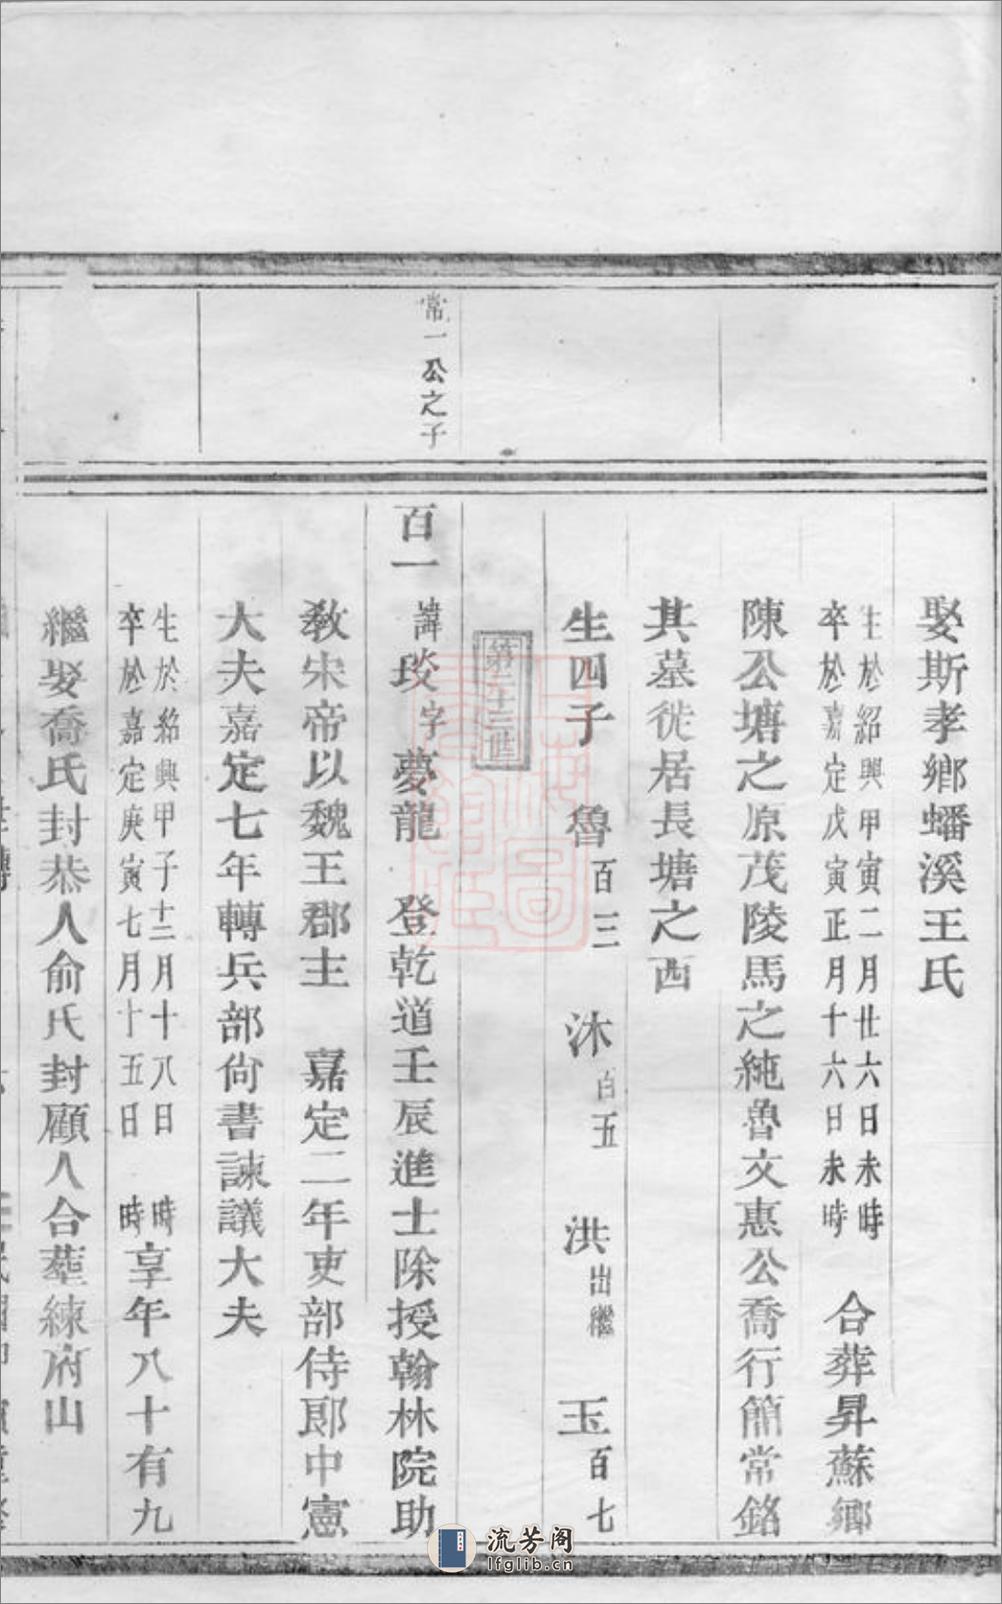 娶斯孝鄉蟠溪王氏
生於紹興甲寅二月廿六日未時
卒於嘉定戊寅正月十六日未時
合葬昇蘇鄉
陳公塘之原茂陵馬之純魯文惠公喬行簡常銘
其墓徙居長塘之西
生四子 魯百三 沐百五 洪出繼 玉百七
第二十三世
常一公之子
百一 諱琰字夢龍 登乾道壬辰進士除授翰林院助
教宋帝以魏王郡主 嘉定二年吏部侍郎中憲
大夫嘉定七年轉兵部尙書諫議大夫
生於紹興甲子十二月十八日 時
卒於嘉定庚寅七月十五日 時
享年八十有九
繼娶喬氏封恭人俞氏封顧人合葬練府山
流芳阁
lfglib.cn